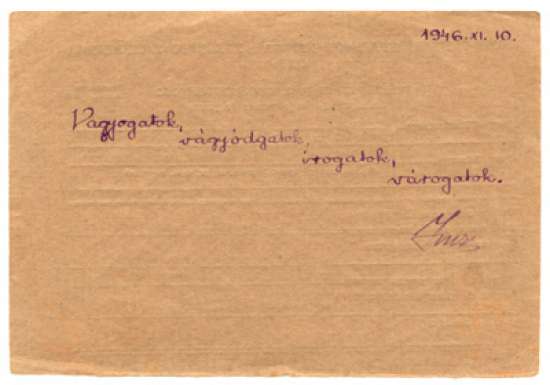 1946. XI. 10.
Vagyogatok,
vágyódgatok,
írogatok,
várogatok.